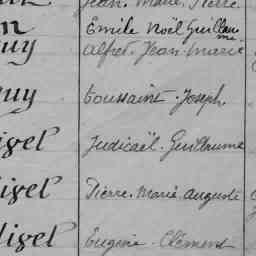 Jean Marie Pierre
n Emile Noël Guillaume
uy Alfret Jean Marie
uy Toussaint Joseph
igel Judicaël Guillaume
igel Pierre Marie Auguste
igel Eugène Clément